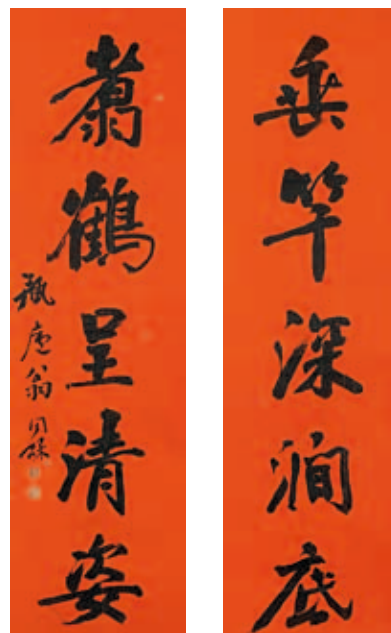 垂竿深澗底
翥鶴呈清姿
瓶廬翁同龢